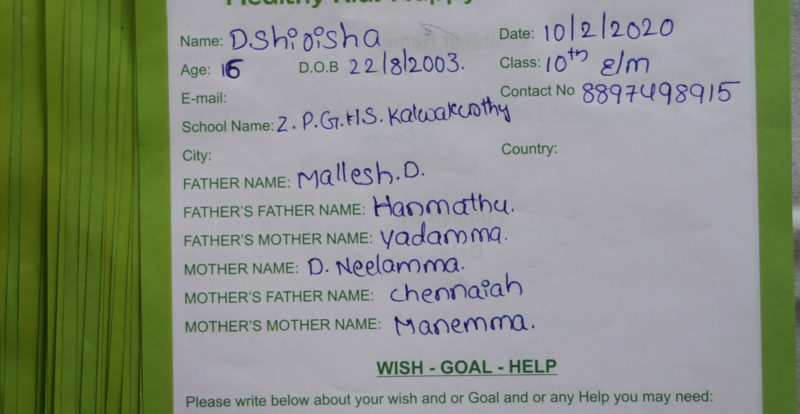 Name: D.Shirisha Date: 10/2/2020
Age: 16 D.O.B 22/8/2003. Class: 10th E/m
E-mail: Contact No 8897498915
School Name: Z.P.G.H.S. Kalwakurthy
City: Country:
FATHER NAME: Mallesh.D.
FATHER'S FATHER NAME: Hanmathu.
FATHER'S MOTHER NAME: Yadamma.
MOTHER NAME: D. Neelamma.
MOTHER'S FATHER NAME: Chennaiah
MOTHER'S MOTHER NAME: Manemma.
WISH - GOAL - HELP
Please write below about your wish and or Goal and or any Help you may need: